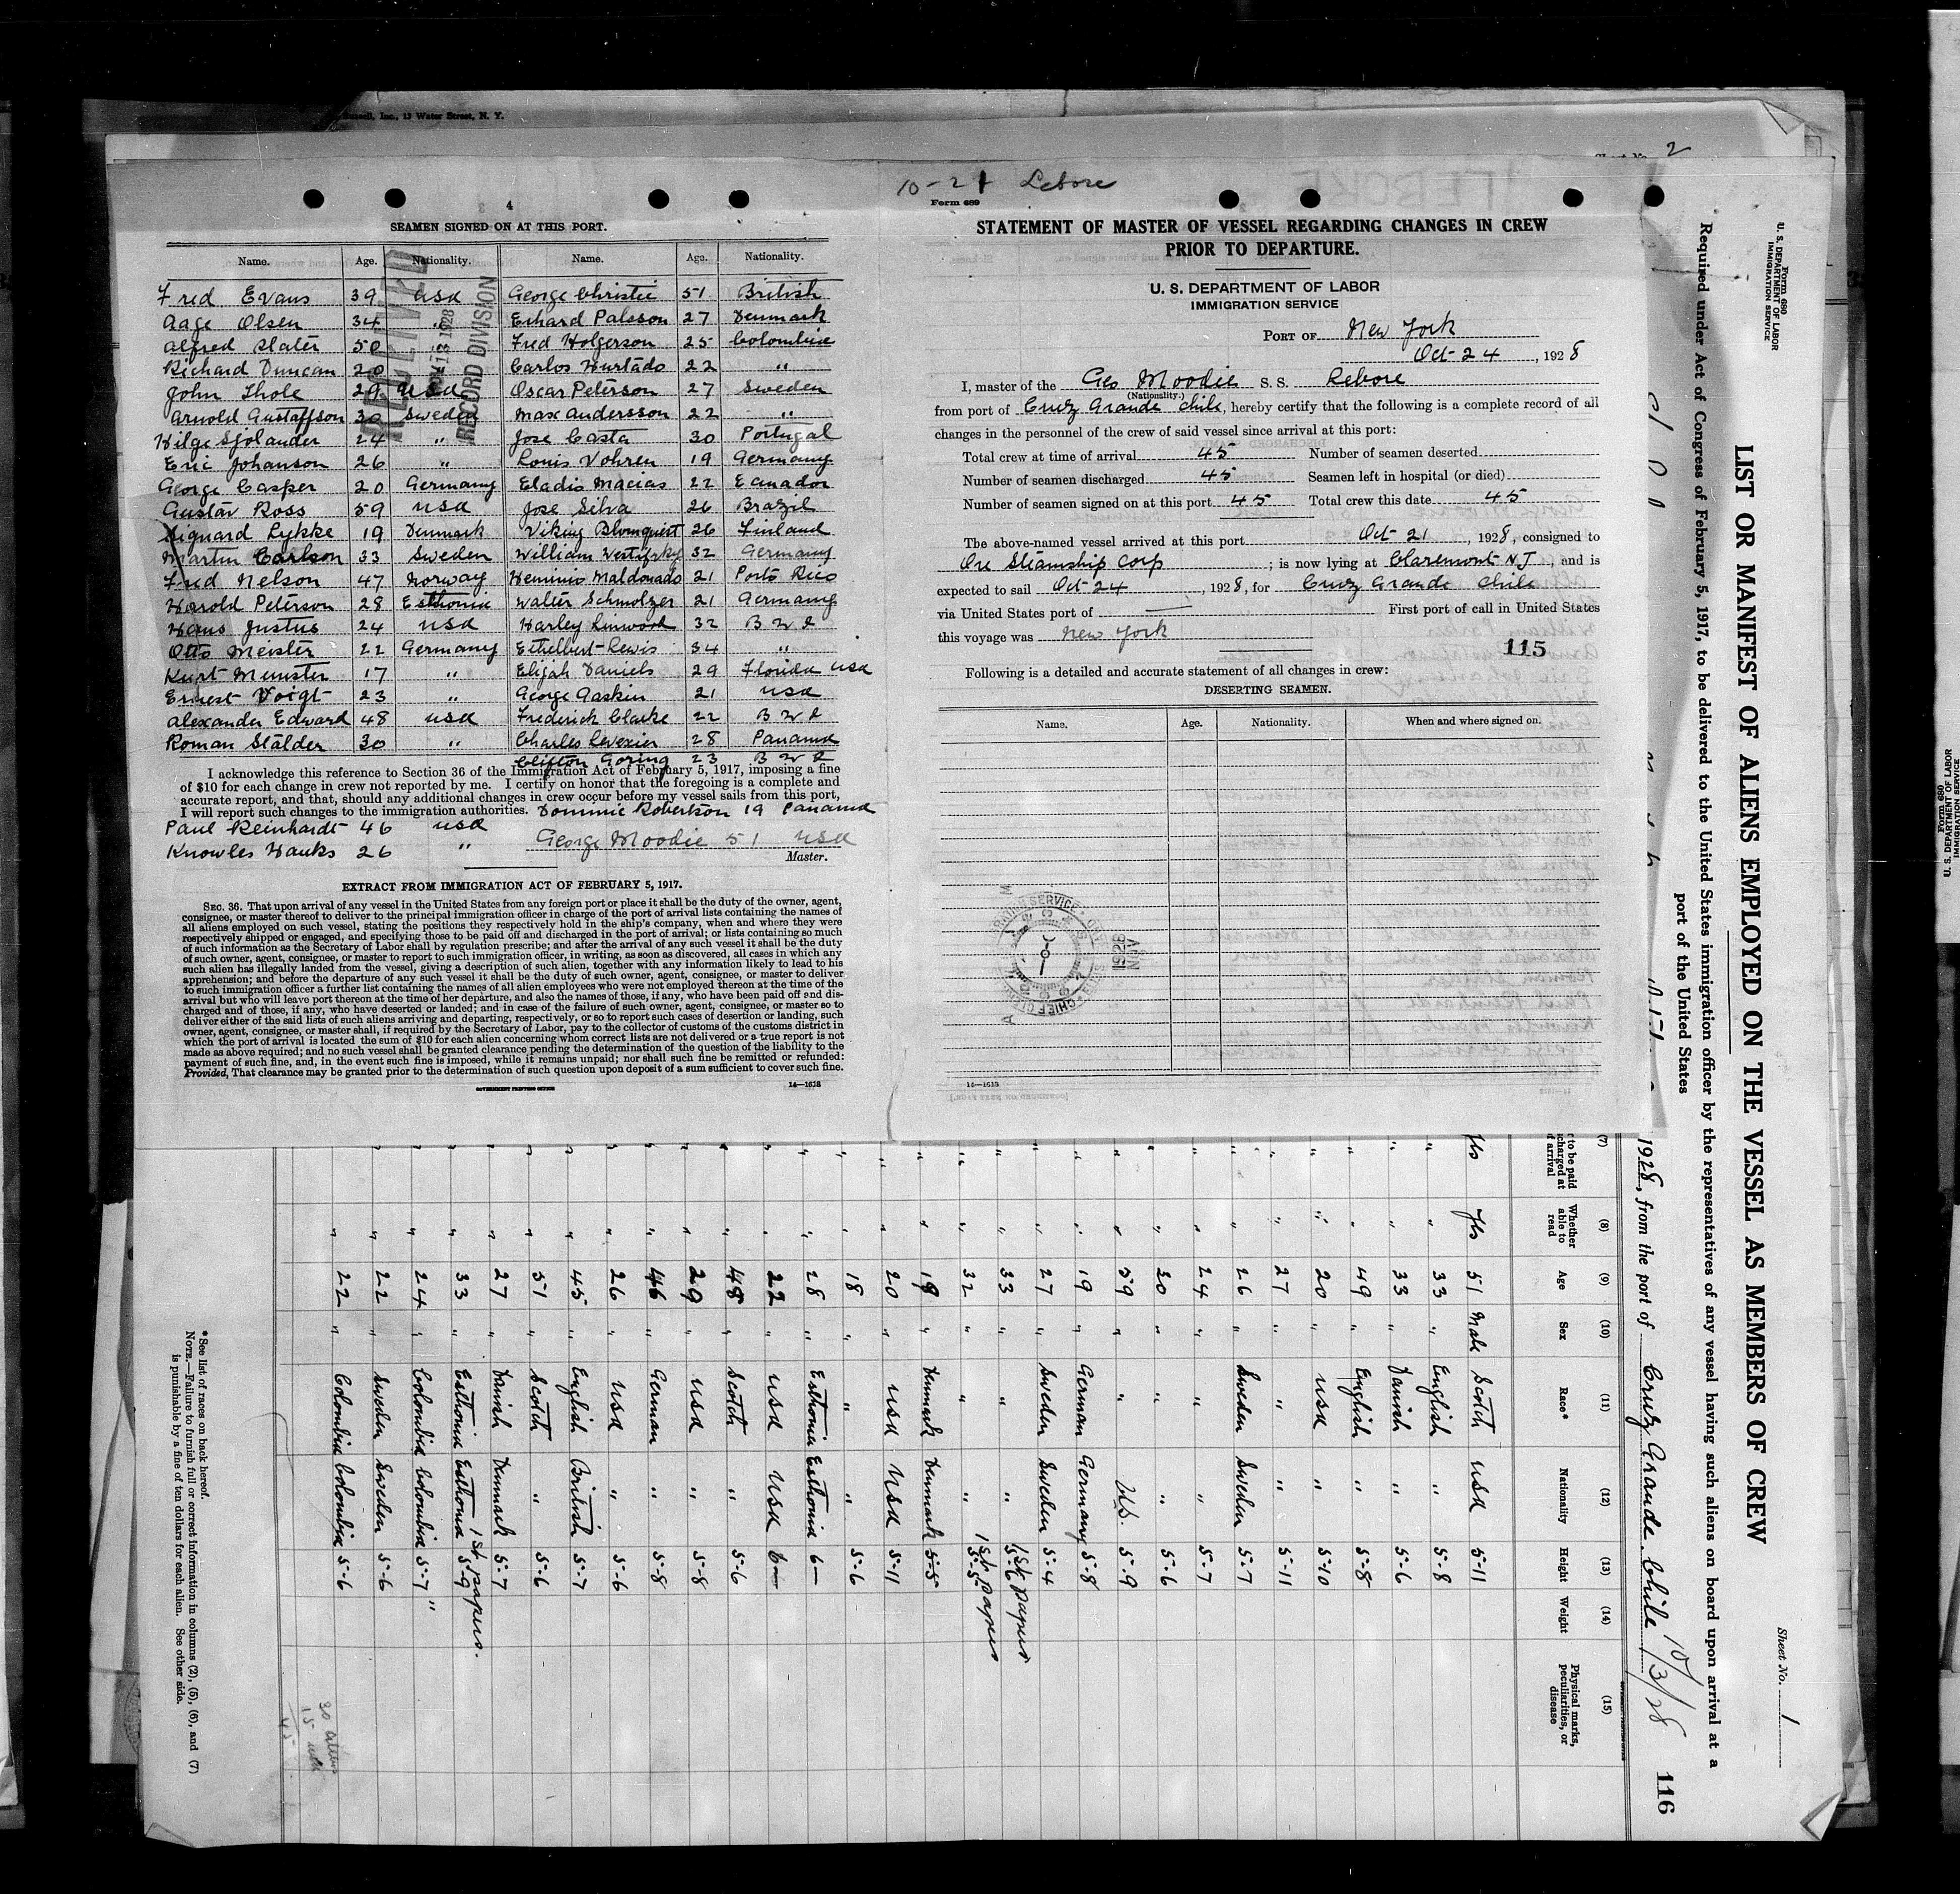 Inc., 13 Water Street, N. Y.
2
4
SEAMEN SIGNED ON AT THIS PORT.
Name. Age. Nationality. Name. Age. Nationality.
Fred Evans 39 USA George Christie 51 British
Aage Olsen 34 " Erhard Palsson 27 Denmark
Alfred Slater 50 " Fred Holgerson 25 Colombia
Richard Duncan 20 Carlos Hurtado 22 "
John Thole 29 USA Oscar Peterson 27 Sweden
Arnold Gustaffson 30 Sweden Max Andersson 22 "
Hilge Sjolander 24 " Jose Costa 30 Portugal
Eric Johanson 26 " Louis Vohren 19 Germany
George Casper 20 Germany Eladis Macias 22 Ecuador
Gustav Ross 59 USA Jose Silva 26 Brazil
Siguard Lykke 19 Denmark Viking Blomquist 26 Finland
Martin Carlson 33 Sweden William 32 Germany
Fred Nelson 47 Norway Heminio Maldonado 21 Porto Rico
Harold Peterson 28 Esthonia Walter Schmolzer 21 Germany
Hans Justus 24 USA Harley Linwood 32 B W I
Otto Meister 22 Germany Ethelbert Lewis 34 "
Kurt Menster 17 " Elijah Daniels 29 Florida USA
Ernest Voigt 23 " George Gaskin 21 USA
Alexander Edward 48 USA Frederick Clarke 22 B W I
Roman Stalder 30 " Charles Levezier 28 Panama
Clifton Goring 23 B W I
RECEIVED
1928
RECORD DIVISION
I acknowledge this reference to Section 36 of the Immigration Act of February 5, 1917, imposing a fine
of $10 for each change in crew not reported by me. I certify on honor that the foregoing is a complete and
accurate report, and that, should any additional changes in crew occur before my vessel sails from this port,
I will report such changes to the immigration authorities. Dommic Robertson 19 Panama
Paul Reinhardt 46 USA
George Moodie 51 USA
Knowles Hanks 26 "
Master.
EXTRACT FROM IMMIGRATION ACT OF FEBRUARY 5, 1917.
SEC. 36. That upon arrival of any vessel in the United States from any foreign port or place it shall be the duty of the owner, agent,
consignee, or master thereof to deliver to the principal immigration officer in charge of the port of arrival lists containing the names of
all aliens employed on such vessel, stating the positions they respectively hold in the ship's company, when and where they were
respectively shipped or engaged, and specifying those to be paid off and discharged in the port of arrival; or lists containing so much
of such information as the Secretary of Labor shall by regulation prescribe; and after the arrival of any such vessel it shall be the duty
of such owner, agent, consignee, or master to report to such immigration officer, in writing, as soon as discovered, all cases in which any
such alien has illegally landed from the vessel, giving a description of such alien, together with any information likely to lead to his
apprehension; and before the departure of any such vessel it shall be the duty of such owner, agent, consignee, or master to deliver
to such immigration officer a further list containing the names of all alien employees who were not employed thereon at the time of the
arrival but who will leave port thereon at the time of her departure, and also the names of those, if any, who have been paid off and dis-
charged and of those, if any, who have deserted or landed; and in case of the failure of such owner, agent, consignee, or master so to
deliver either of the said lists of such aliens arriving and departing, respectively, or so to report such cases of desertion or landing, such
owner, agent, consignee, or master shall, if required by the Secretary of Labor, pay to the collector of customs of the customs district in
which the port of arrival is located the sum of $10 for each alien concerning whom correct lists are not delivered or a true report is not
made as above required; and no such vessel shall be granted clearance pending the determination of the question of the liability to the
payment of such fine, and, in the event such fine is imposed, while it remains unpaid; nor shall such fine be remitted or refunded:
Provided, That clearance may be granted prior to the determination of such question upon deposit of a sum sufficient to cover such fine.
GOVERNMENT PRINTING OFFICE 14—1618
10-21 Lebore
Form 689
STATEMENT OF MASTER OF VESSEL REGARDING CHANGES IN CREW
PRIOR TO DEPARTURE.
U. S. DEPARTMENT OF LABOR
IMMIGRATION SERVICE
PORT OF New York
Oct 24, 1928
I, master of the Geo Moodie S. S. Lebore
(Nationality.)
from port of Cruz Grande Chile, hereby certify that the following is a complete record of all
changes in the personnel of the crew of said vessel since arrival at this port:
Total crew at time of arrival 45 Number of seamen deserted
Number of seamen discharged 45 Seamen left in hospital (or died)
Number of seamen signed on at this port 45 Total crew this date 45
The above-named vessel arrived at this port Oct 21, 1928, consigned to
Ore Steamship Corp; is now lying at Claremont NJ, and is
expected to sail Oct 24, 1928, for Cruz Grande Chile
via United States port of — First port of call in United States
this voyage was New York
115
Following is a detailed and accurate statement of all changes in crew:
DESERTING SEAMEN.
Name. Age. Nationality. When and where signed on.
1928
NOV
14—1618
Form 680
U. S. DEPARTMENT OF LABOR
IMMIGRATION SERVICE
Sheet No. 1
LIST OR MANIFEST OF ALIENS EMPLOYED ON THE VESSEL AS MEMBERS OF CREW
Required under Act of Congress of February 5, 1917, to be delivered to the United States immigration officer by the representatives of any vessel having such aliens on board upon arrival at a
port of the United States
1928, from the port of Cruz Grande Chile 10/3/28
116
(7) (8) (9) (10) (11) (12) (13) (14) (15)
to be paid
charged at
arrival
Whether able to read Age Sex Race* Nationality Height Weight Physical marks, peculiarities, or disease
Yes Yes 51 Male Scotch USA 5-11
" " 33 " English " 5-8
" " 33 " Danish " 5-6
" " 49 " English " 5-8
" " 20 " USA " 5-10
" " 27 " " " 5-11
" " 26 " Sweden Sweden 5-7
" " 24 " " " 5-7
" " 30 " " " 5-6
" " 59 " " US. 5-9
" " 19 " German Germany 5-8
" " 27 " Sweden Sweden 5-4
" " 33 " " " 5-6 1st papers
" " 32 " " " 5-5 1st papers
" " 19 " Denmark Denmark 5-5
" " 20 " USA USA 5-11
" " 18 " " " 5-6
" " 28 " Esthonia Esthonia 6—
" " 22 " USA USA 6—
" " 48 " Scotch " 5-6
" " 29 " USA " 5-8
" " 46 " German " 5-8
" " 26 " USA " 5-6
" " 45 " English British 5-7
" " 51 " Scotch " 5-6
" " 27 " Danish Denmark 5-7
" " 33 " Esthonia Esthonia 5-9 1st papers.
" " 24 " Colombia Colombia 5-7 "
" " 22 " Sweden Sweden 5-6
" " 22 " Colombia Colombia 5-6
30 aliens
15 USA
45
* See list of races on back hereof.
NOTE.—Failure to furnish full or correct information in columns (2), (5), (6), and (7)
is punishable by a fine of ten dollars for each alien. See other side.
Form 680
U. S. DEPARTMENT OF LABOR
IMMIGRATION SERVICE